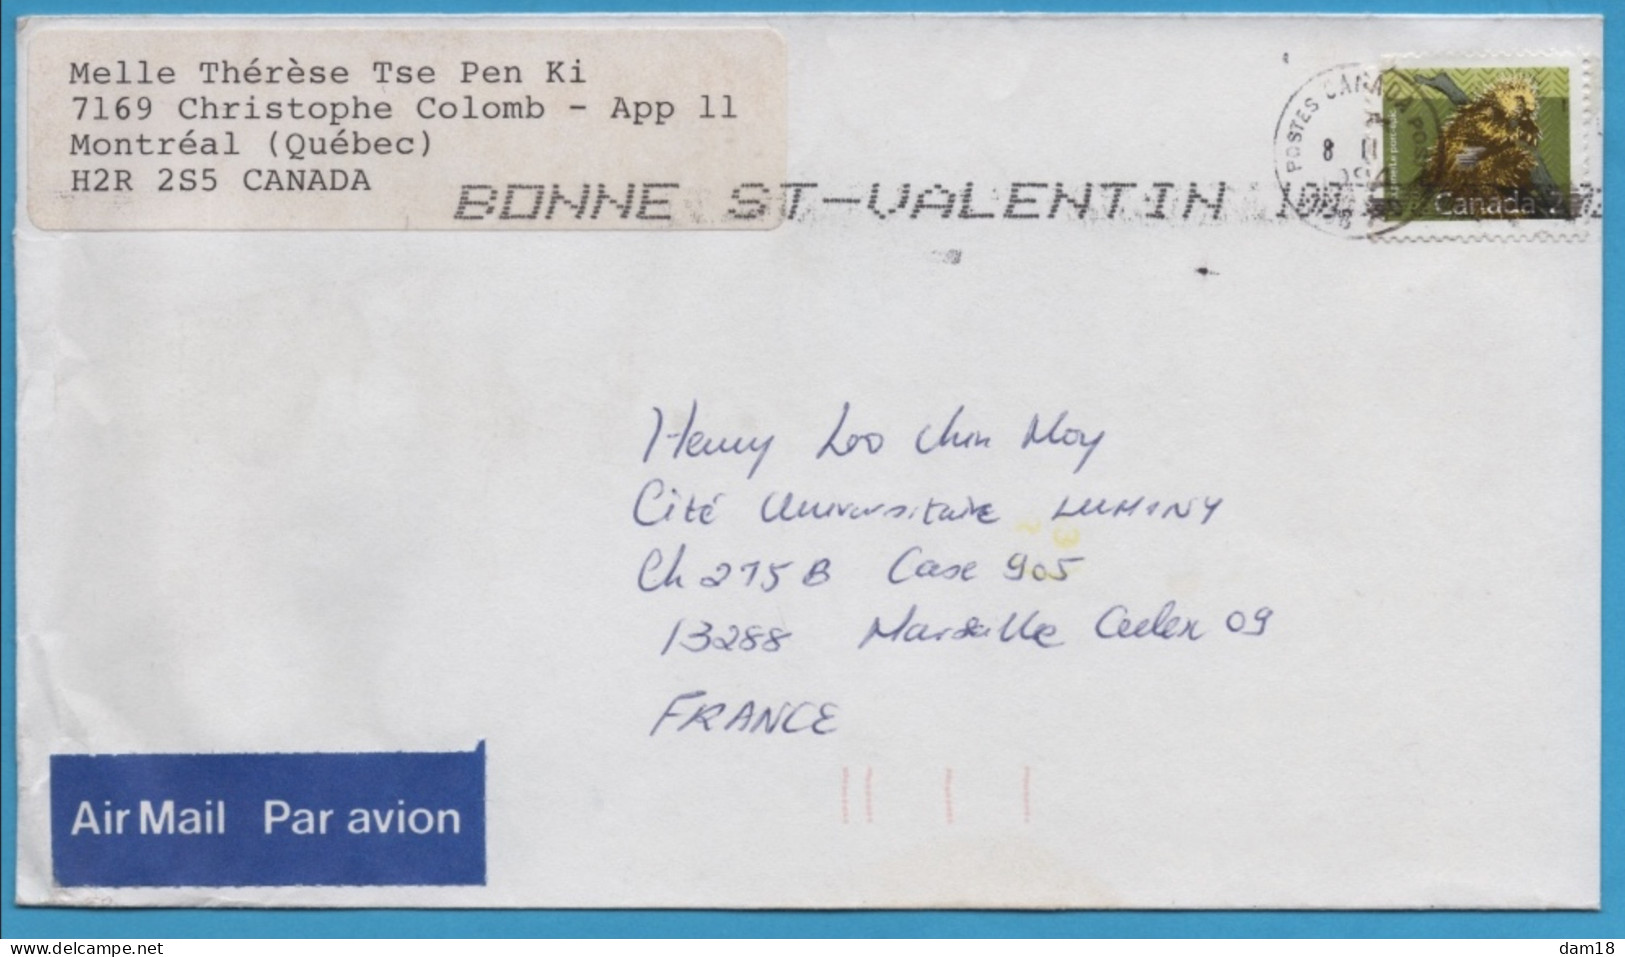 Melle Thérèse Tse Pen Ki
7169 Christophe Colomb - App 11
Montréal (Québec)
H2R 2S5 CANADA
BONNE ST-VALENTIN
POSTES CANADA
8 II
Canada
Henry Loo Chin Moy
Cité Universitaire LUMINY
Ch 275 B Case 905
13288 Marseille Cedex 09
FRANCE
Air Mail Par avion
delcampe.net
dam18